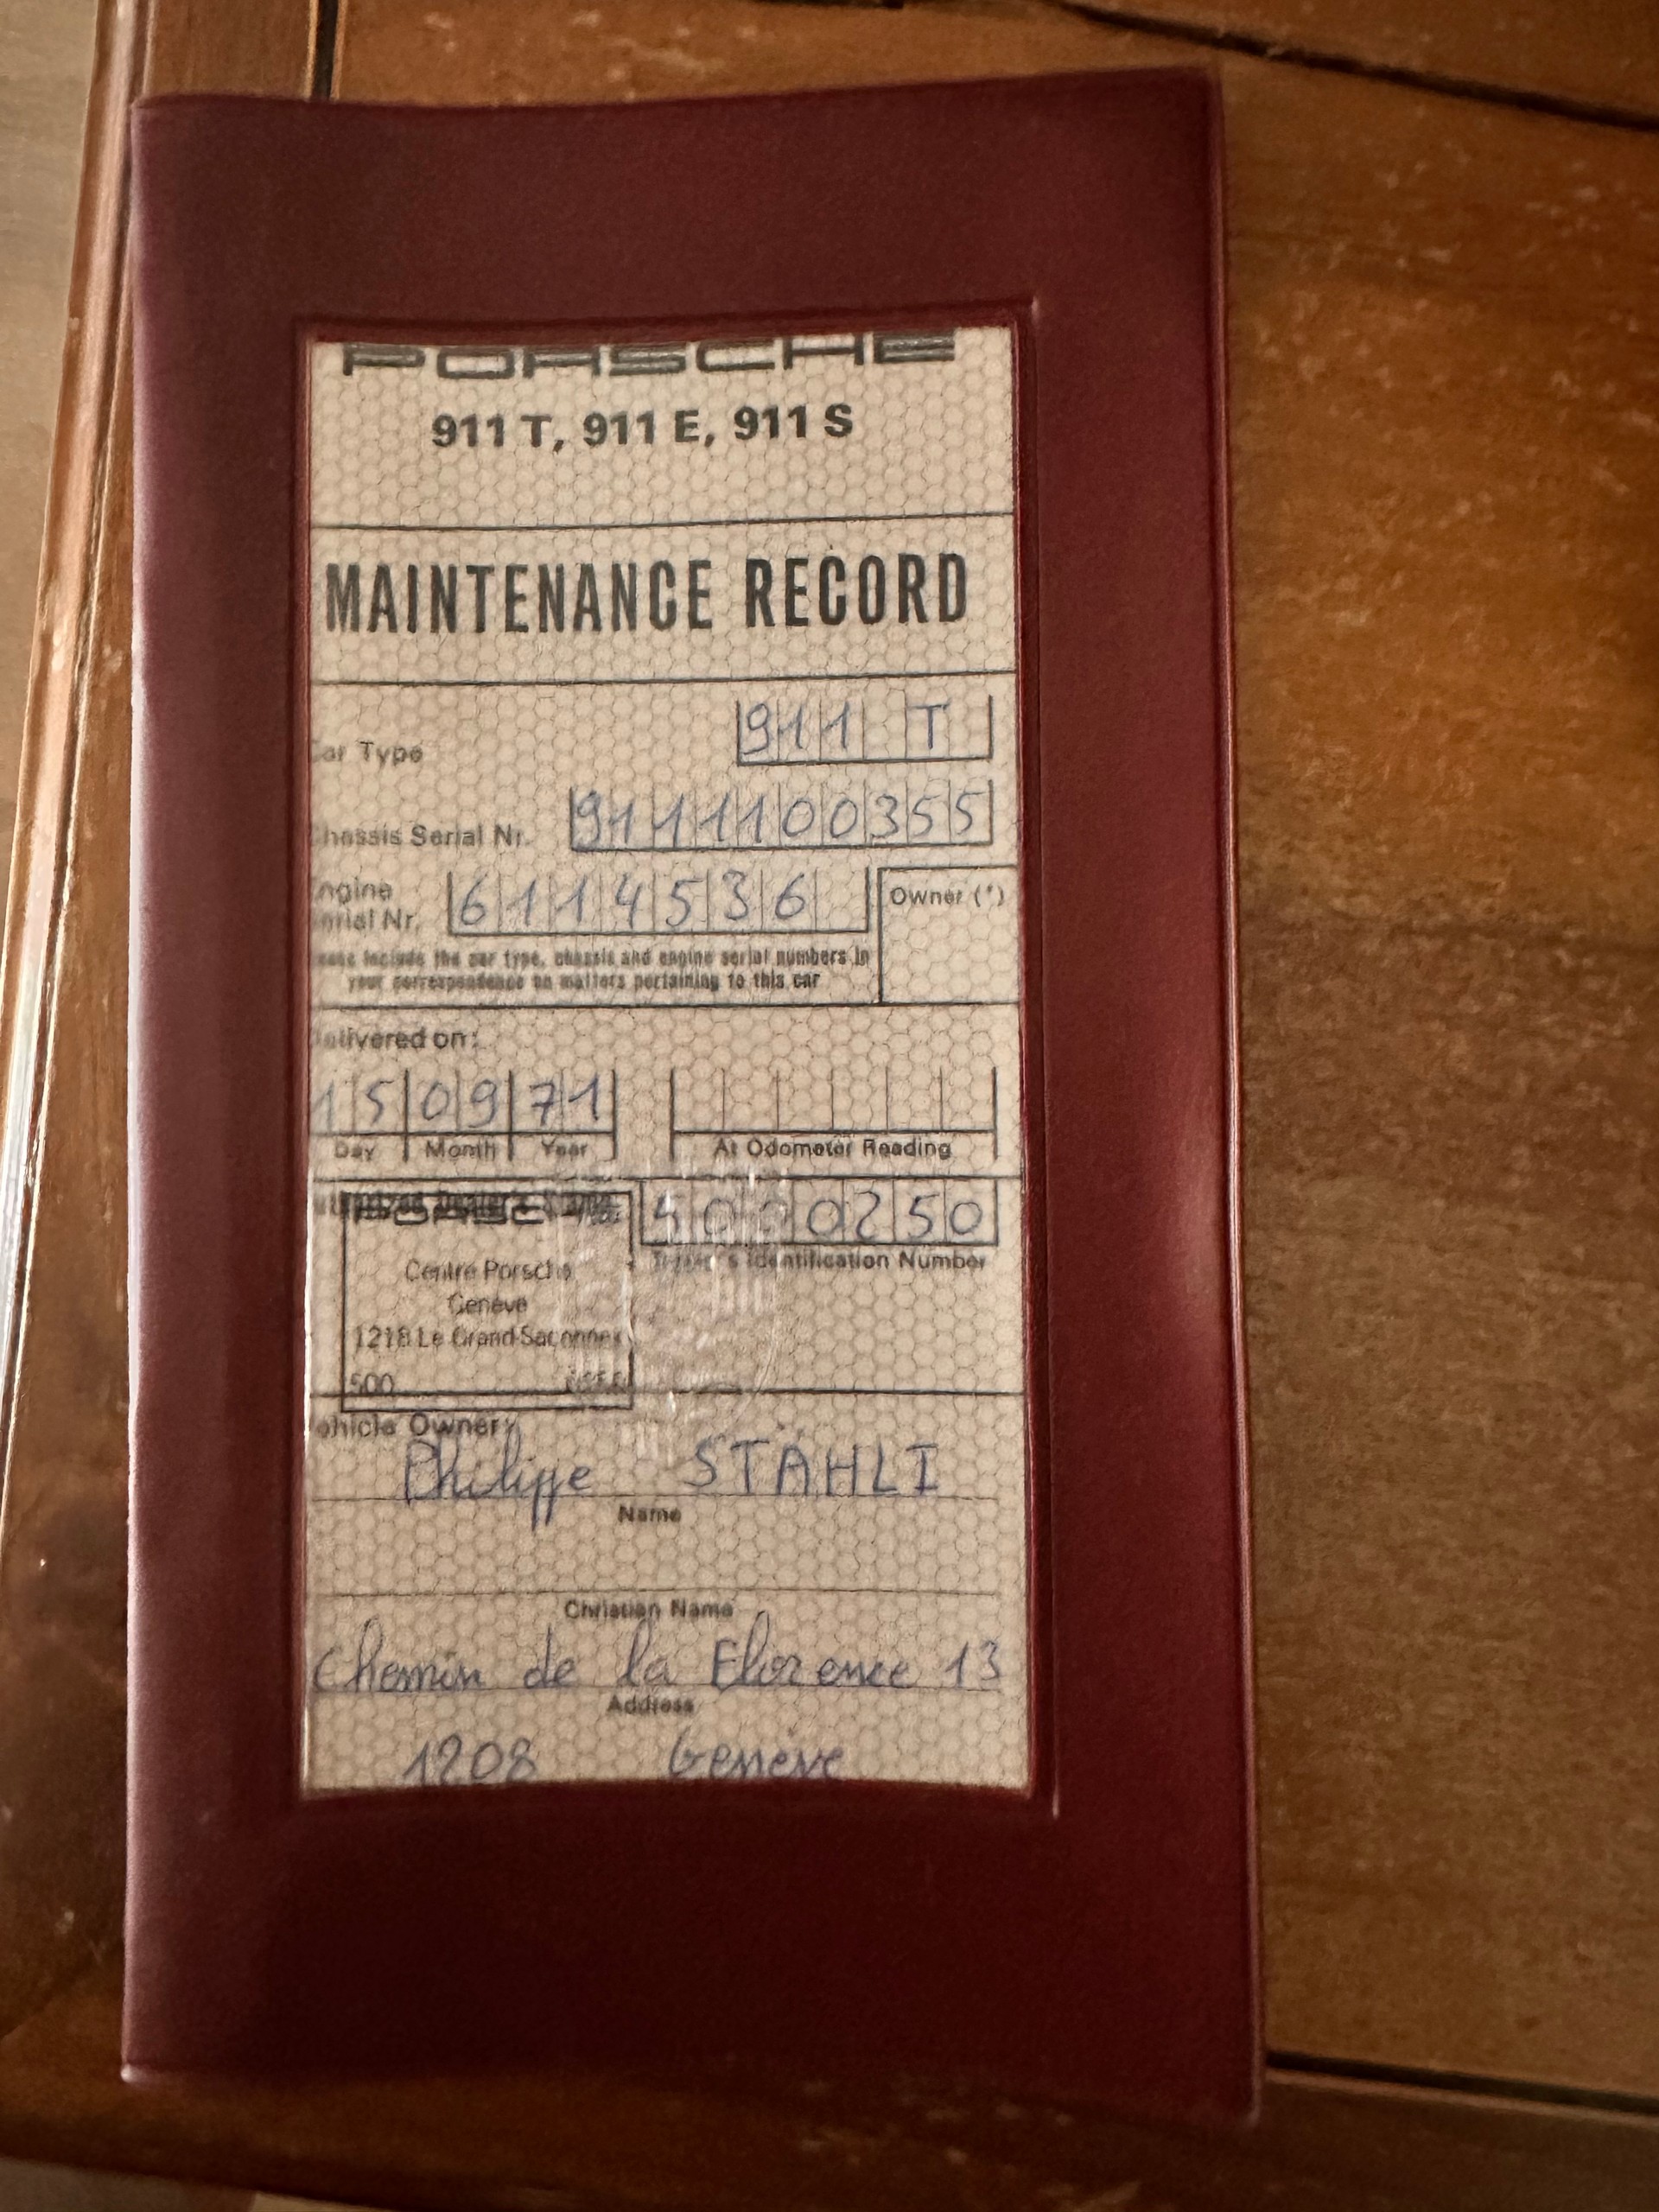 PORSCHE
911 T, 911 E, 911 S
MAINTENANCE RECORD
911 T
ar Type
9111100355
hassis Serial Nr.
ngine
rial Nr.
6114536
Owner (*)
include the car type, chassis and engine serial numbers in
your correspondence on matters pertaining to this car
elivered on:
15 09 71
Day Month Year
At Odometer Reading
Dealer's
PORSCHE
5000250
Identification Number
Centre Porsche
Genève
1218 Le Grand-Saconnex
500
ehicle Owner:
Philippe STÄHLI
Name
Christian Name
Chemin de la Florence 13
Address
1208 Genève